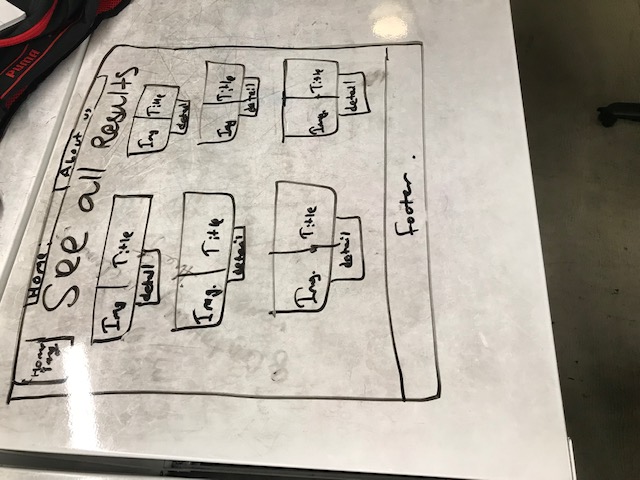 Home
Img
Home.
About us
See all Results
Img Title
detail
Img Title
detail
Img. Title
detail
Img Title
detail
Img. Title
detail
Img. Title
detail
Footer.
PUMA